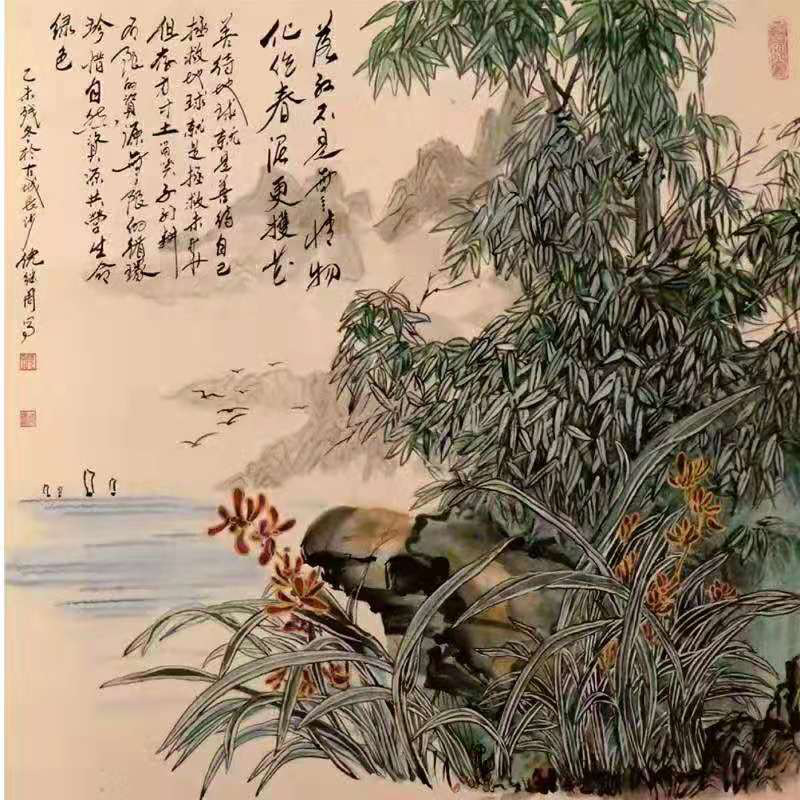 落红不是無情物
化作春泥更護花
善待地球就是善待自己
拯救地球就是拯救未来
但存方寸土留与子孙耕
有限的資源無限的循環
珍惜自然資源共营生命
绿色
乙未残冬於古城长沙